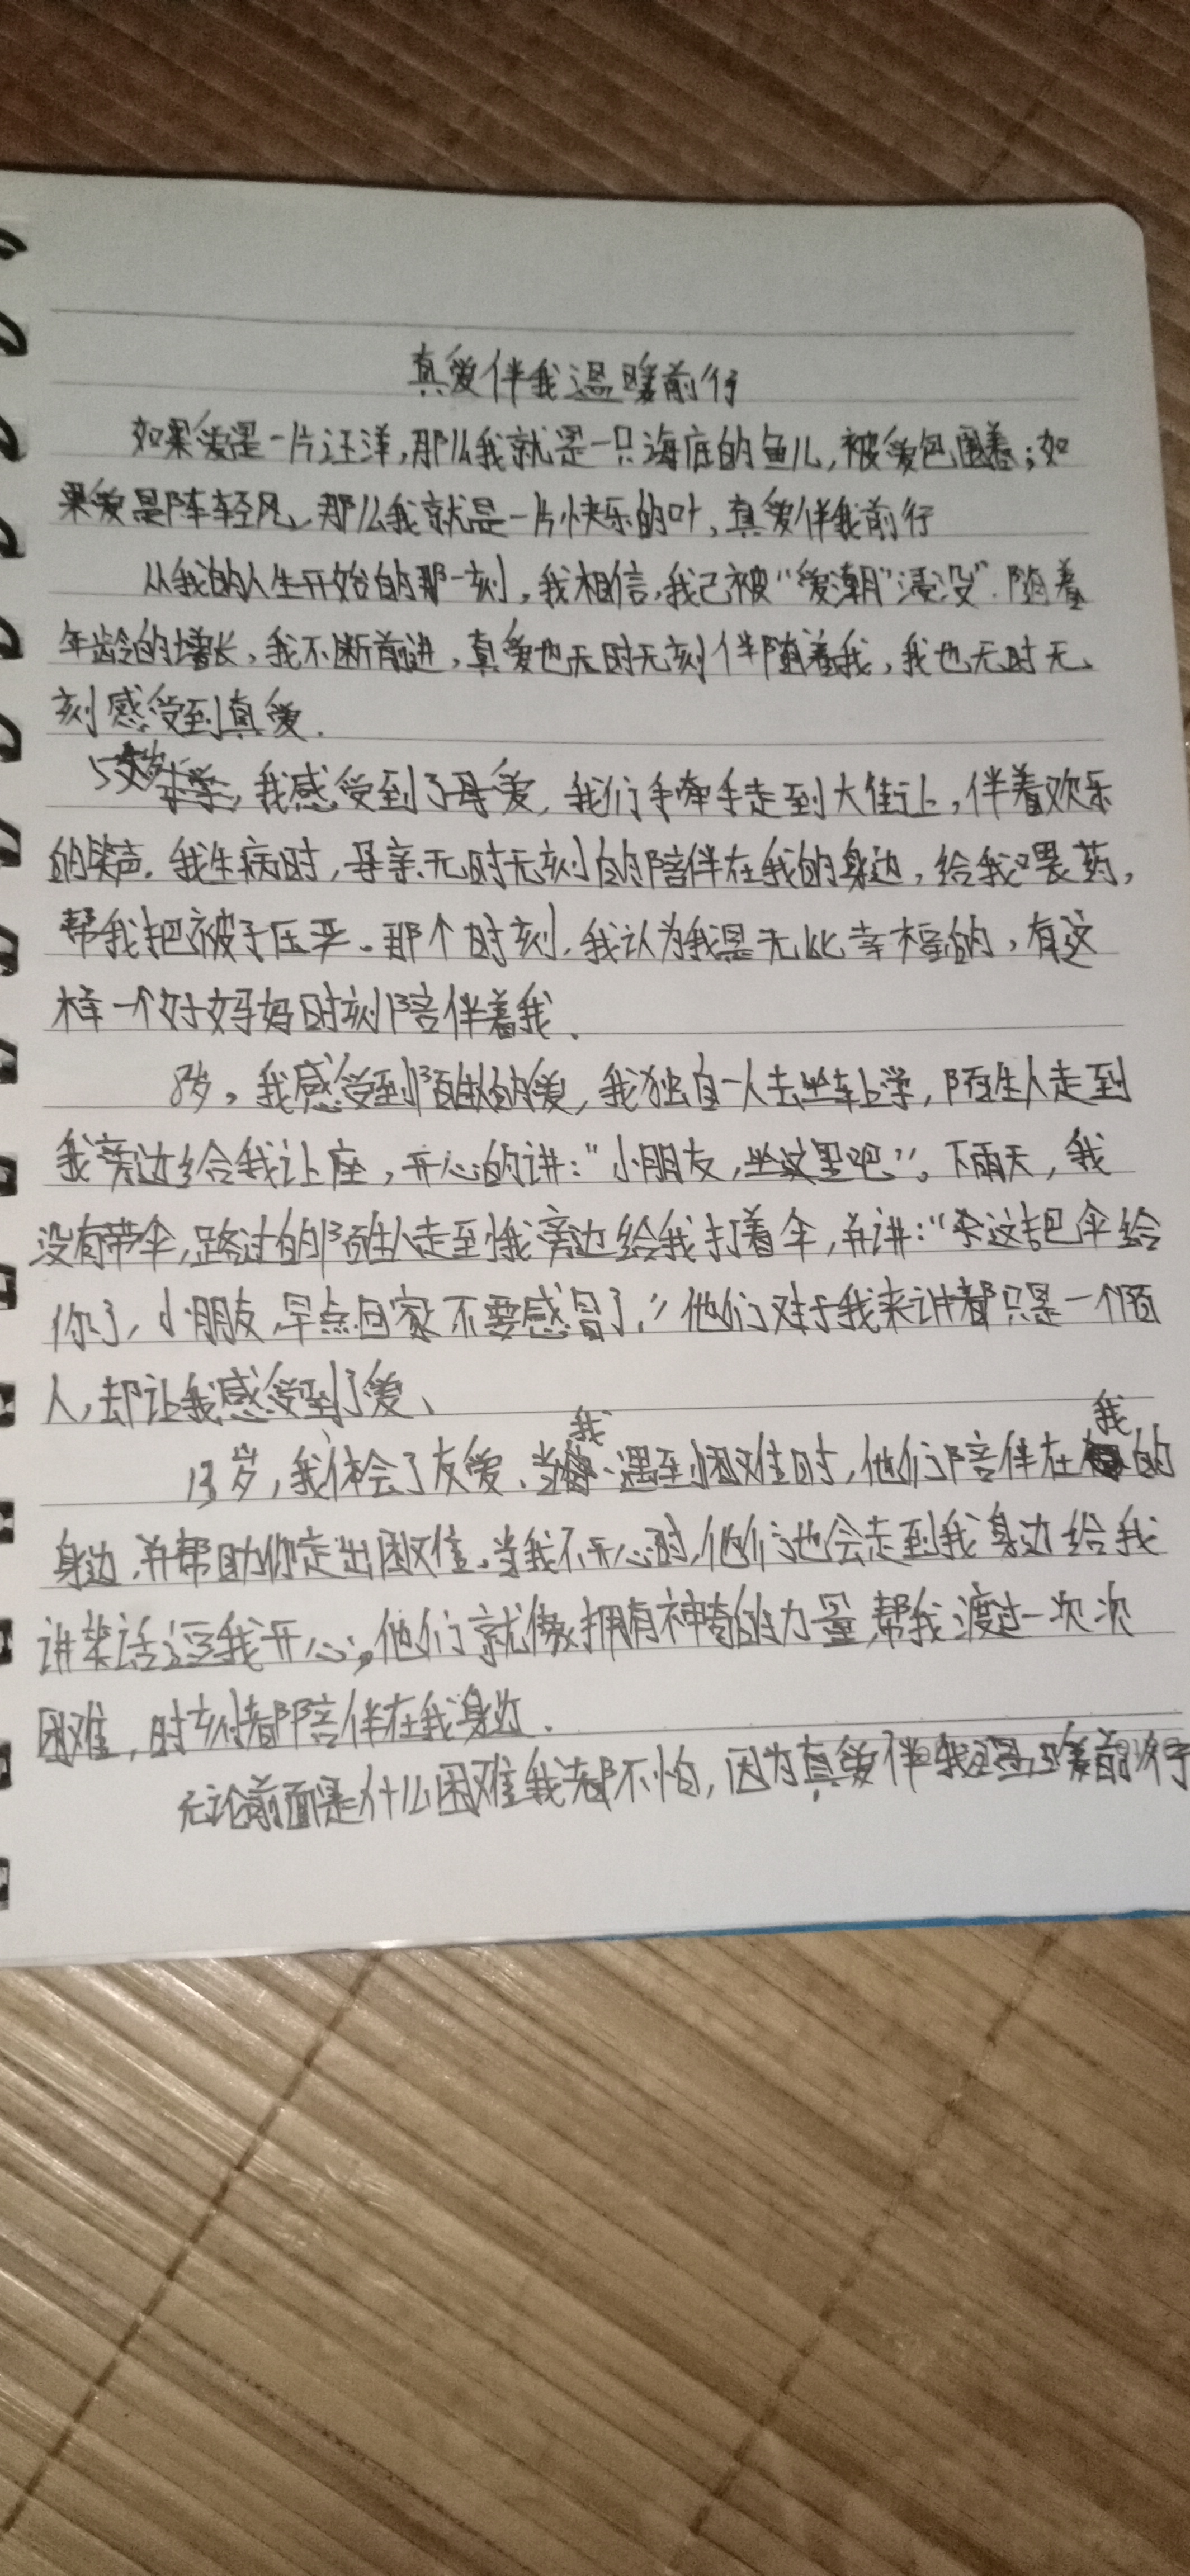 真爱伴我温暖前行
如果爱是一片汪洋,那么我就是一只海底的鱼儿,被爱包围着;如
果爱是阵轻风、那么我就是一片快乐的叶、真爱伴我前行
从我的人生开始的那一刻,我相信,我已被“爱潮”浸没”.随着
年龄的增长,我不断前进,真爱也无时无刻伴随着我,我也无时无
刻感受到真爱.
5岁,我感受到了母爱,我们手牵手走到大街上,伴着欢乐
的笑声.我生病时,母亲无时无刻的陪伴在我的身边,给我喂药,
帮我把被子压严.那个时刻,我认为我是无比幸福的,有这
样一个好妈妈时刻陪伴着我.
8岁,我感受到陌生人的爱,我独自一人去坐车上学,陌生人走到
我旁边给我让座,开心的讲:“小朋友,坐这里吧”。下雨天,我
没有带伞,路过的陌生人走到我旁边给我打着伞,并讲:“来这把伞给
你了,小朋友,早点回家不要感冒了.”他们对于我来讲都只是一个陌
人,却让我感受到了爱、
13岁,我体会了友爱.当我遇到困难时,他们陪伴在我的
身边,并帮助你走出困难.当我不开心时,他们也会走到我身边给我
讲笑话逗我开心,他们就像拥有神奇的力量,帮我渡过一次次
困难,时刻都陪伴在我身边.
无论前面是什么困难我都不怕,因为真爱伴我温暖前行